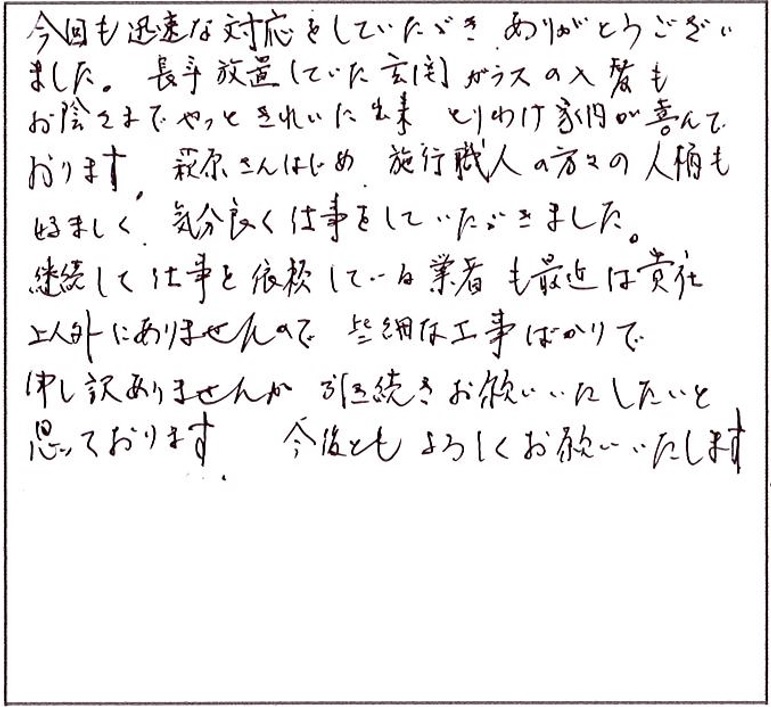 今回も迅速な対応をしていただき ありがとうござい
ました。 長年放置していた玄関ガラスの入替も
お陰さまでやっときれいに出来 とりわけ家内が喜んで
おります。 萩原さんはじめ 施行職人の方々の人柄も
好ましく 気分良く仕事をしていただきました。
継続して仕事を依頼している業者も最近は貴社
以外にありませんので 些細な工事ばかりで
申し訳ありませんが 引き続きお願いいたしたいと
思っております 今後ともよろしくお願いいたします